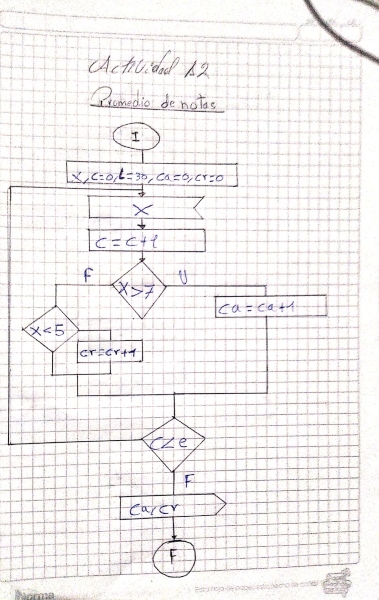 Actividad 12
Promedio de notas
I
X, C=0, L=30, Ca=0, Cr=0
X
C = C+1
F
X>7
V
Ca = Ca+1
X<5
Cr=Cr+1
C<e
F
Ca, Cr
F
Norma